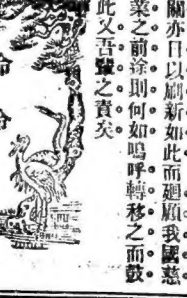 關亦日以刷新如此而廻顧我國慈
業之前涂則何如嗚呼轉移之而鼓
此又吾輩之責矣